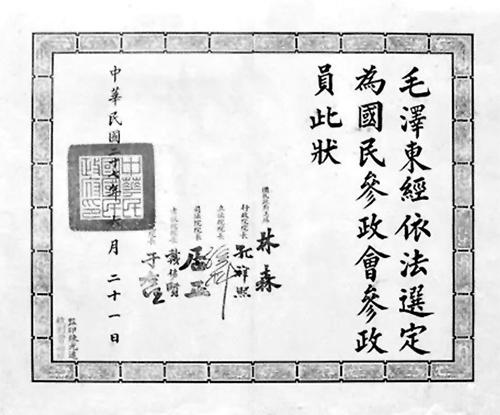 毛澤東經依法選定
為國民參政會參政
員此狀
國民政府主席 林森
行政院院長 孔祥熙
立法院院長 孫科
司法院院長 居正
考試院院長 戴傳賢
院長 于右任
中華民國二十七年六月二十一日
中華民國國民政府印